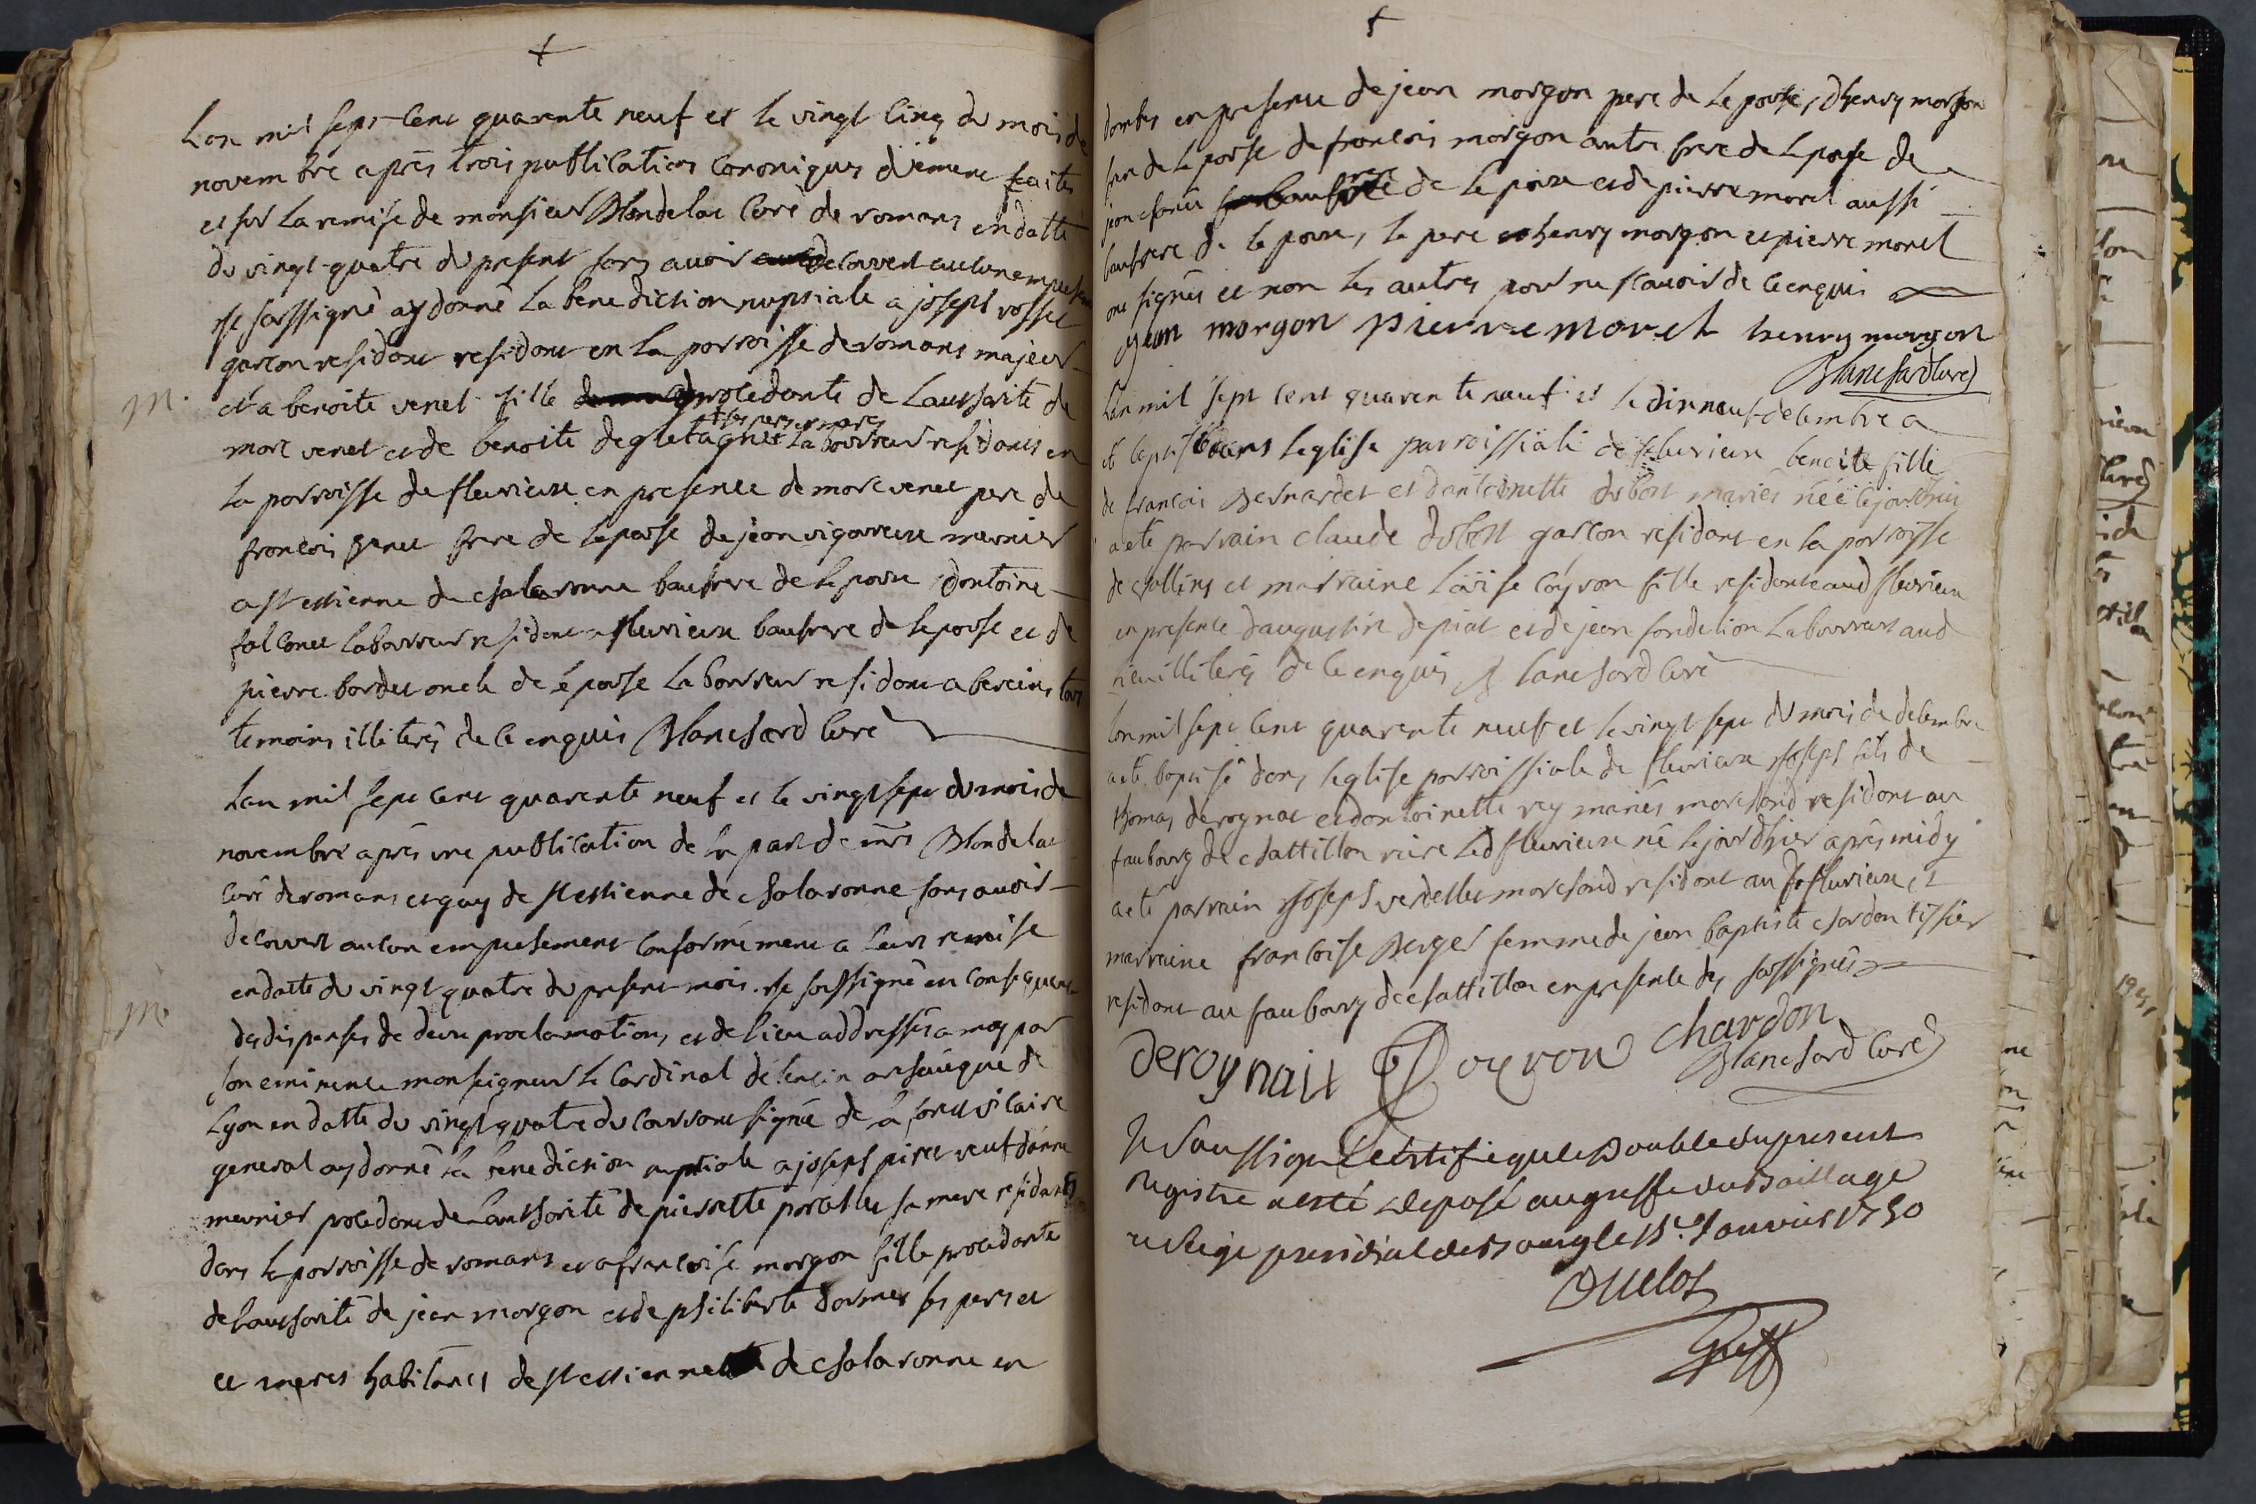 Lan mil sept cent quarante neuf et le vingt cinq du mois de
novembre apres trois publications canoniques dûement faites
et sur la remise de monsieur Blondelat curé de romans en datte
du vingt-quatre du present sans avoir decouvert aucun empeschem
Je soussigné ay donné la benediction nuptiale a joseph rosset
garcon residant residant en la parroisse de romans majeur
M. et a benoite venet fille procedante de lauthorité de
+ ses pere et mere
marc venet et de benoite degletagnes laboureur residants en
la parroisse de fleurieux en presence de marc venet pere de
francois venet frere de lepouse de jean vigoureux meunier
a st estienne de chalaronne baufrere de lepoux dantoine
falconet laboureur residant a fleurieux baufrere de lepouse et de
pierre bordet oncle de l'epouse laboureur residant a bereins tous
temoins illiterés de ce enquis Blanchard curé
Lan mil sept cent quarante neuf et le vingt sept du mois de
novembre apres une publication de la part de mrs Blondelat
curé de romans et guy de st estienne de chalaronne sans avoir
decouvert aucun empeschement conformement a leurs remise
en datte du vingt quatre du present mois. Je soussigné en consequence
M. des dispenses de deux proclamations et de lieu addressés a moy par
son eminence monseigneur le cardinal de tencin archevêque de
Lyon en datte du vingt quatre du courrant signée de la vicaire
general ay donné la benediction nuptiale a joseph piret veuf
meunier procedant de lauthorité de pierrette sa mere residants
dans la parroisse de romans et a francoise morgon fille procedante
de lauthorité de jean morgon et de philiberte dormes ses pere et
et meres habitants de st estienne de chalaronne en
dombes en presence de jean morgon pere de lepouse, dhenry morgon
frere de lepouse de francois morgon autre frere de lepouse de
jean frere de lepoux et de pierre moret aussi
baufrere de lepoux, le pere et henry morgon et pierre moret
ont signés et non les autres pour ne scavoir de ce enquis
jean morgon pierre moret henry morgon
Blanchard curé
Lan mil sept cent quarante neuf et le dixneuf decembre a
eté baptisée dans leglise parroissiale de fleurieux benoite fille
de francois Bernardet et dantoinette dubost mariés née cejourdhuy
a eté parrain claude dubost garcon residant en la parroisse
de et marraine Loüise coyron fille residante aud fleurieux
en presence daugustin depiat et de jean fondelion laboureurs aud
lieu illiterés de ce enquis Blanchard curé
Lan mil sept cent quarante neuf et le vingt sept du mois de decembre
a eté baptisé dans leglise parroissiale de fleurieux joseph fils de
thomas derognat et dantoinette rey mariés marchand residant au
faubourg de chattillon riere led fleurieux né le jourdhier après midy
a eté parrain joseph verdellet marchand residant au fleurieux et
marraine francoise Berger femme de jean baptiste chardon tissier
residant au faubourg de chattillon en presence des soussignés
deroynait Coyron chardon
Blanchard curé
Je soussigné certifie que le double du present
registre a esté deposé au greffe du baillage
et siege presidial de bourg le Janvier 1750
Duclos
Greff